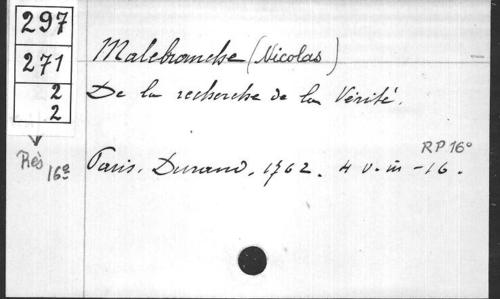 297
271
2
2
Rés
16º
Malebranche (Nicolas)
De la recherche de la Vérité.
RP 16º
Paris. Durand. 1762. 4 v. in-16.